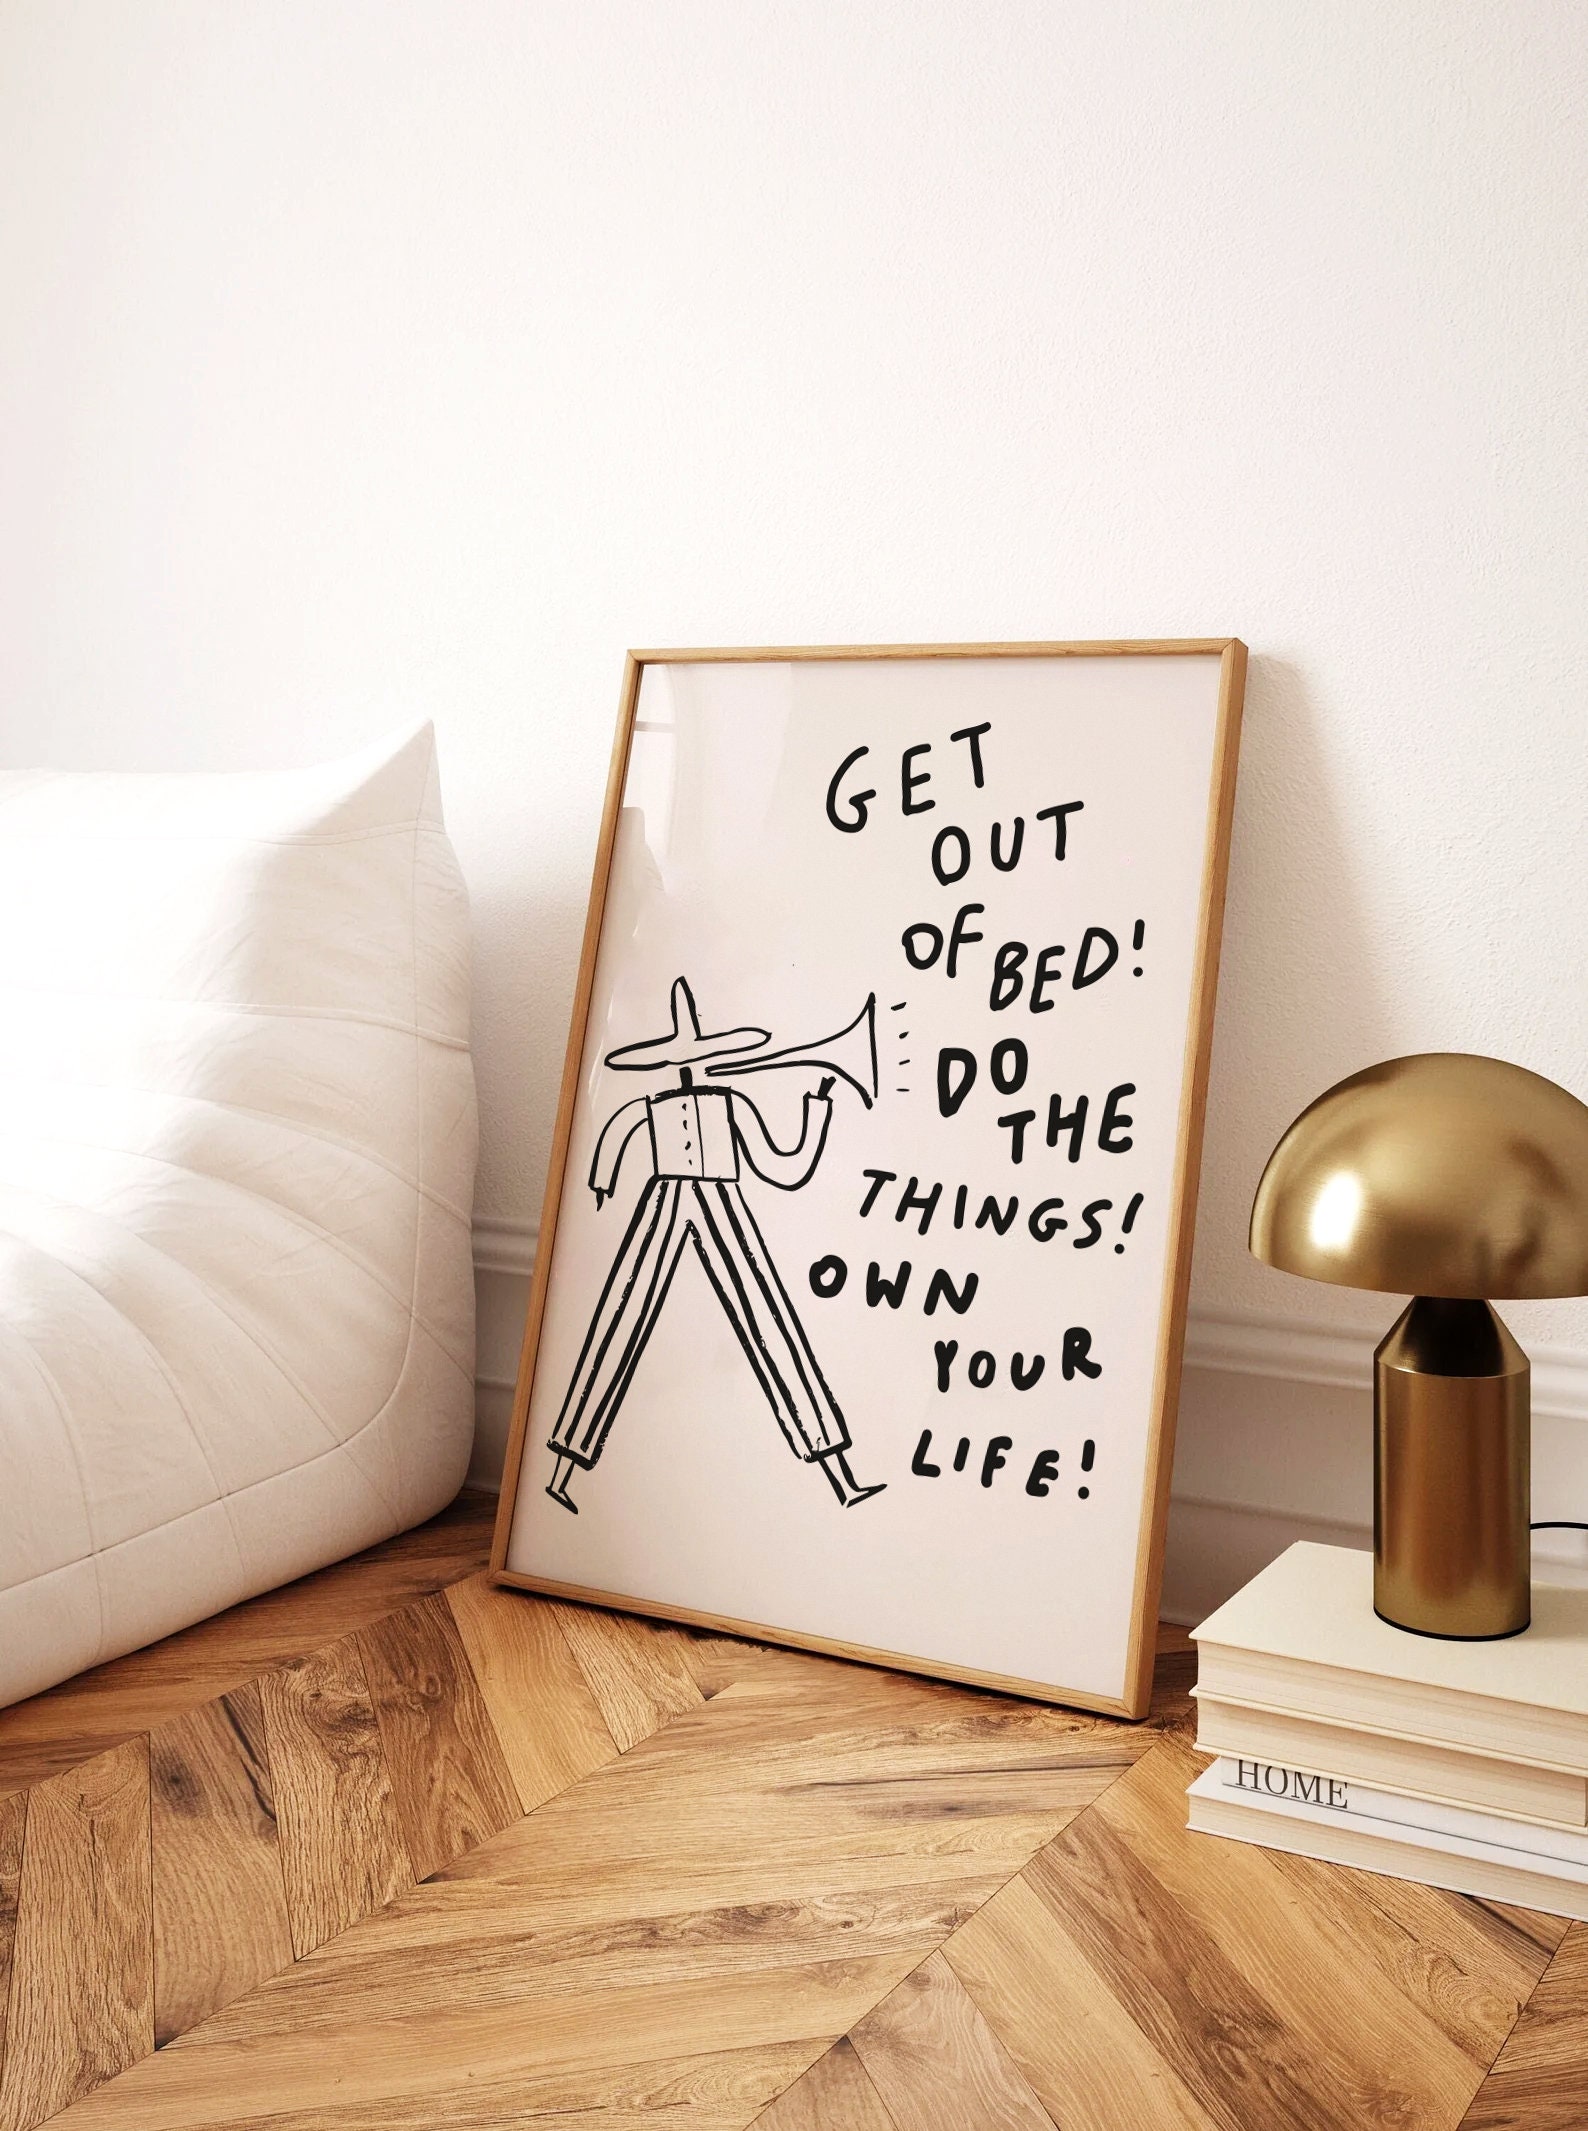 GET
OUT
OF BED!
DO
THE
THINGS!
OWN
YOUR
LIFE!
HOME